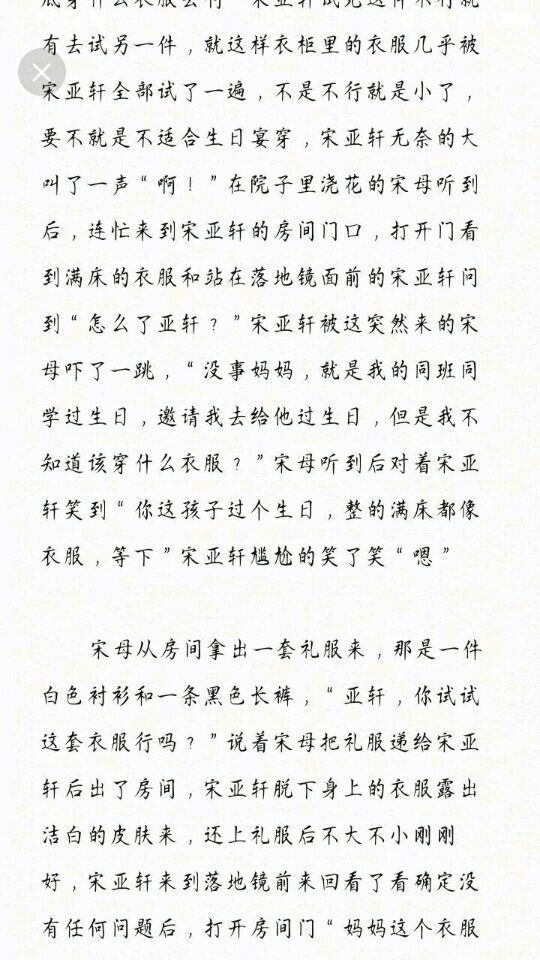 底穿什么衣服去行"宋亚轩试完这件不行就
有去试另一件，就这样衣柜里的衣服几乎被
宋亚轩全部试了一遍，不是不行就是小了，
要不就是不适合生日宴穿，宋亚轩无奈的大
叫了一声“啊！”在院子里浇花的宋母听到
后，连忙来到宋亚轩的房间门口，打开门看
到满床的衣服和站在落地镜面前的宋亚轩问
到“怎么了亚轩？”宋亚轩被这突然来的宋
母吓了一跳，“没事妈妈，就是我的同班同
学过生日，邀请我去给他过生日，但是我不
知道该穿什么衣服？”宋母听到后对着宋亚
轩笑到“你这孩子过个生日，整的满床都像
衣服，等下”宋亚轩尴尬的笑了笑“嗯”
宋母从房间拿出一套礼服来，那是一件
白色衬衫和一条黑色长裤，“亚轩，你试试
这套衣服行吗？”说着宋母把礼服递给宋亚
轩后出了房间，宋亚轩脱下身上的衣服露出
洁白的皮肤来，还上礼服后不大不小刚刚
好，宋亚轩来到落地镜前来回看了看确定没
有任何问题后，打开房间门“妈妈这个衣服